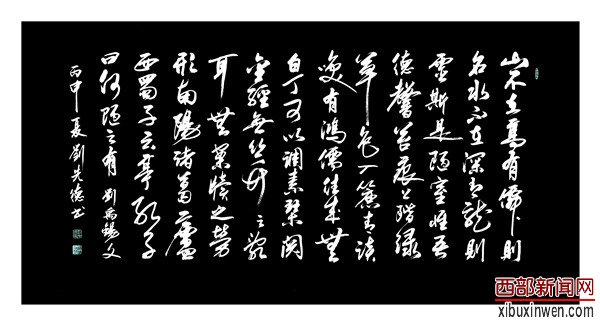 山不在高有僊則
名水不在深有龍則
靈斯是陋室惟吾
德馨苔痕上階綠
草色入簾青談
笑有鴻儒往來無
白丁可以調素琴閱
金經無絲竹之亂
耳無案牘之勞
形南陽諸葛廬
西蜀子雲亭孔子
曰何陋之有 劉禹錫文
丙申夏劉先德書
西部新闻网
xibuxinwen.com